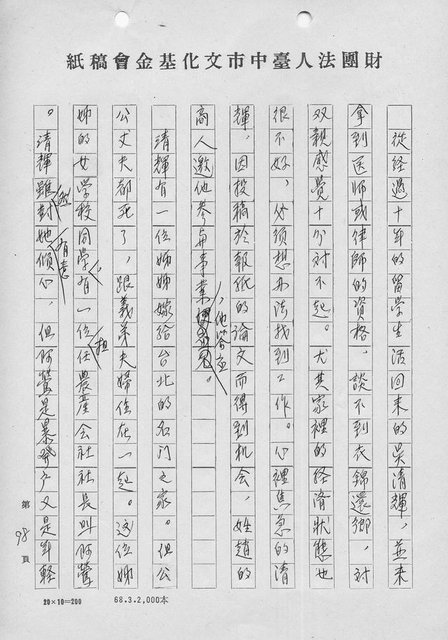 財團法人臺中市文化基金會稿紙
從經過十年的留学生活回来的吳清輝，並未
拿到医師或律師的資格，談不到衣錦還鄉，对
双親感覺十分对不起。尤其家裡的经済狀態也
很不好，必須想办法找到工作。心裡焦急的清
輝，因投稿於報紙的論文而得到机会，姓趙的
商人邀他參与事業，他答应。
清輝有一位姊姊嫁給台北的名門之家。但公
公丈夫都死了，跟義弟夫婦住在一起。這位姊
姊的女学校同学，有一位担任農產会社社長叫阿鶯
。清輝雖对她有意傾心，但阿鶯是暴發户又是年輕
第98頁
20×10=200
68.3.2,000本